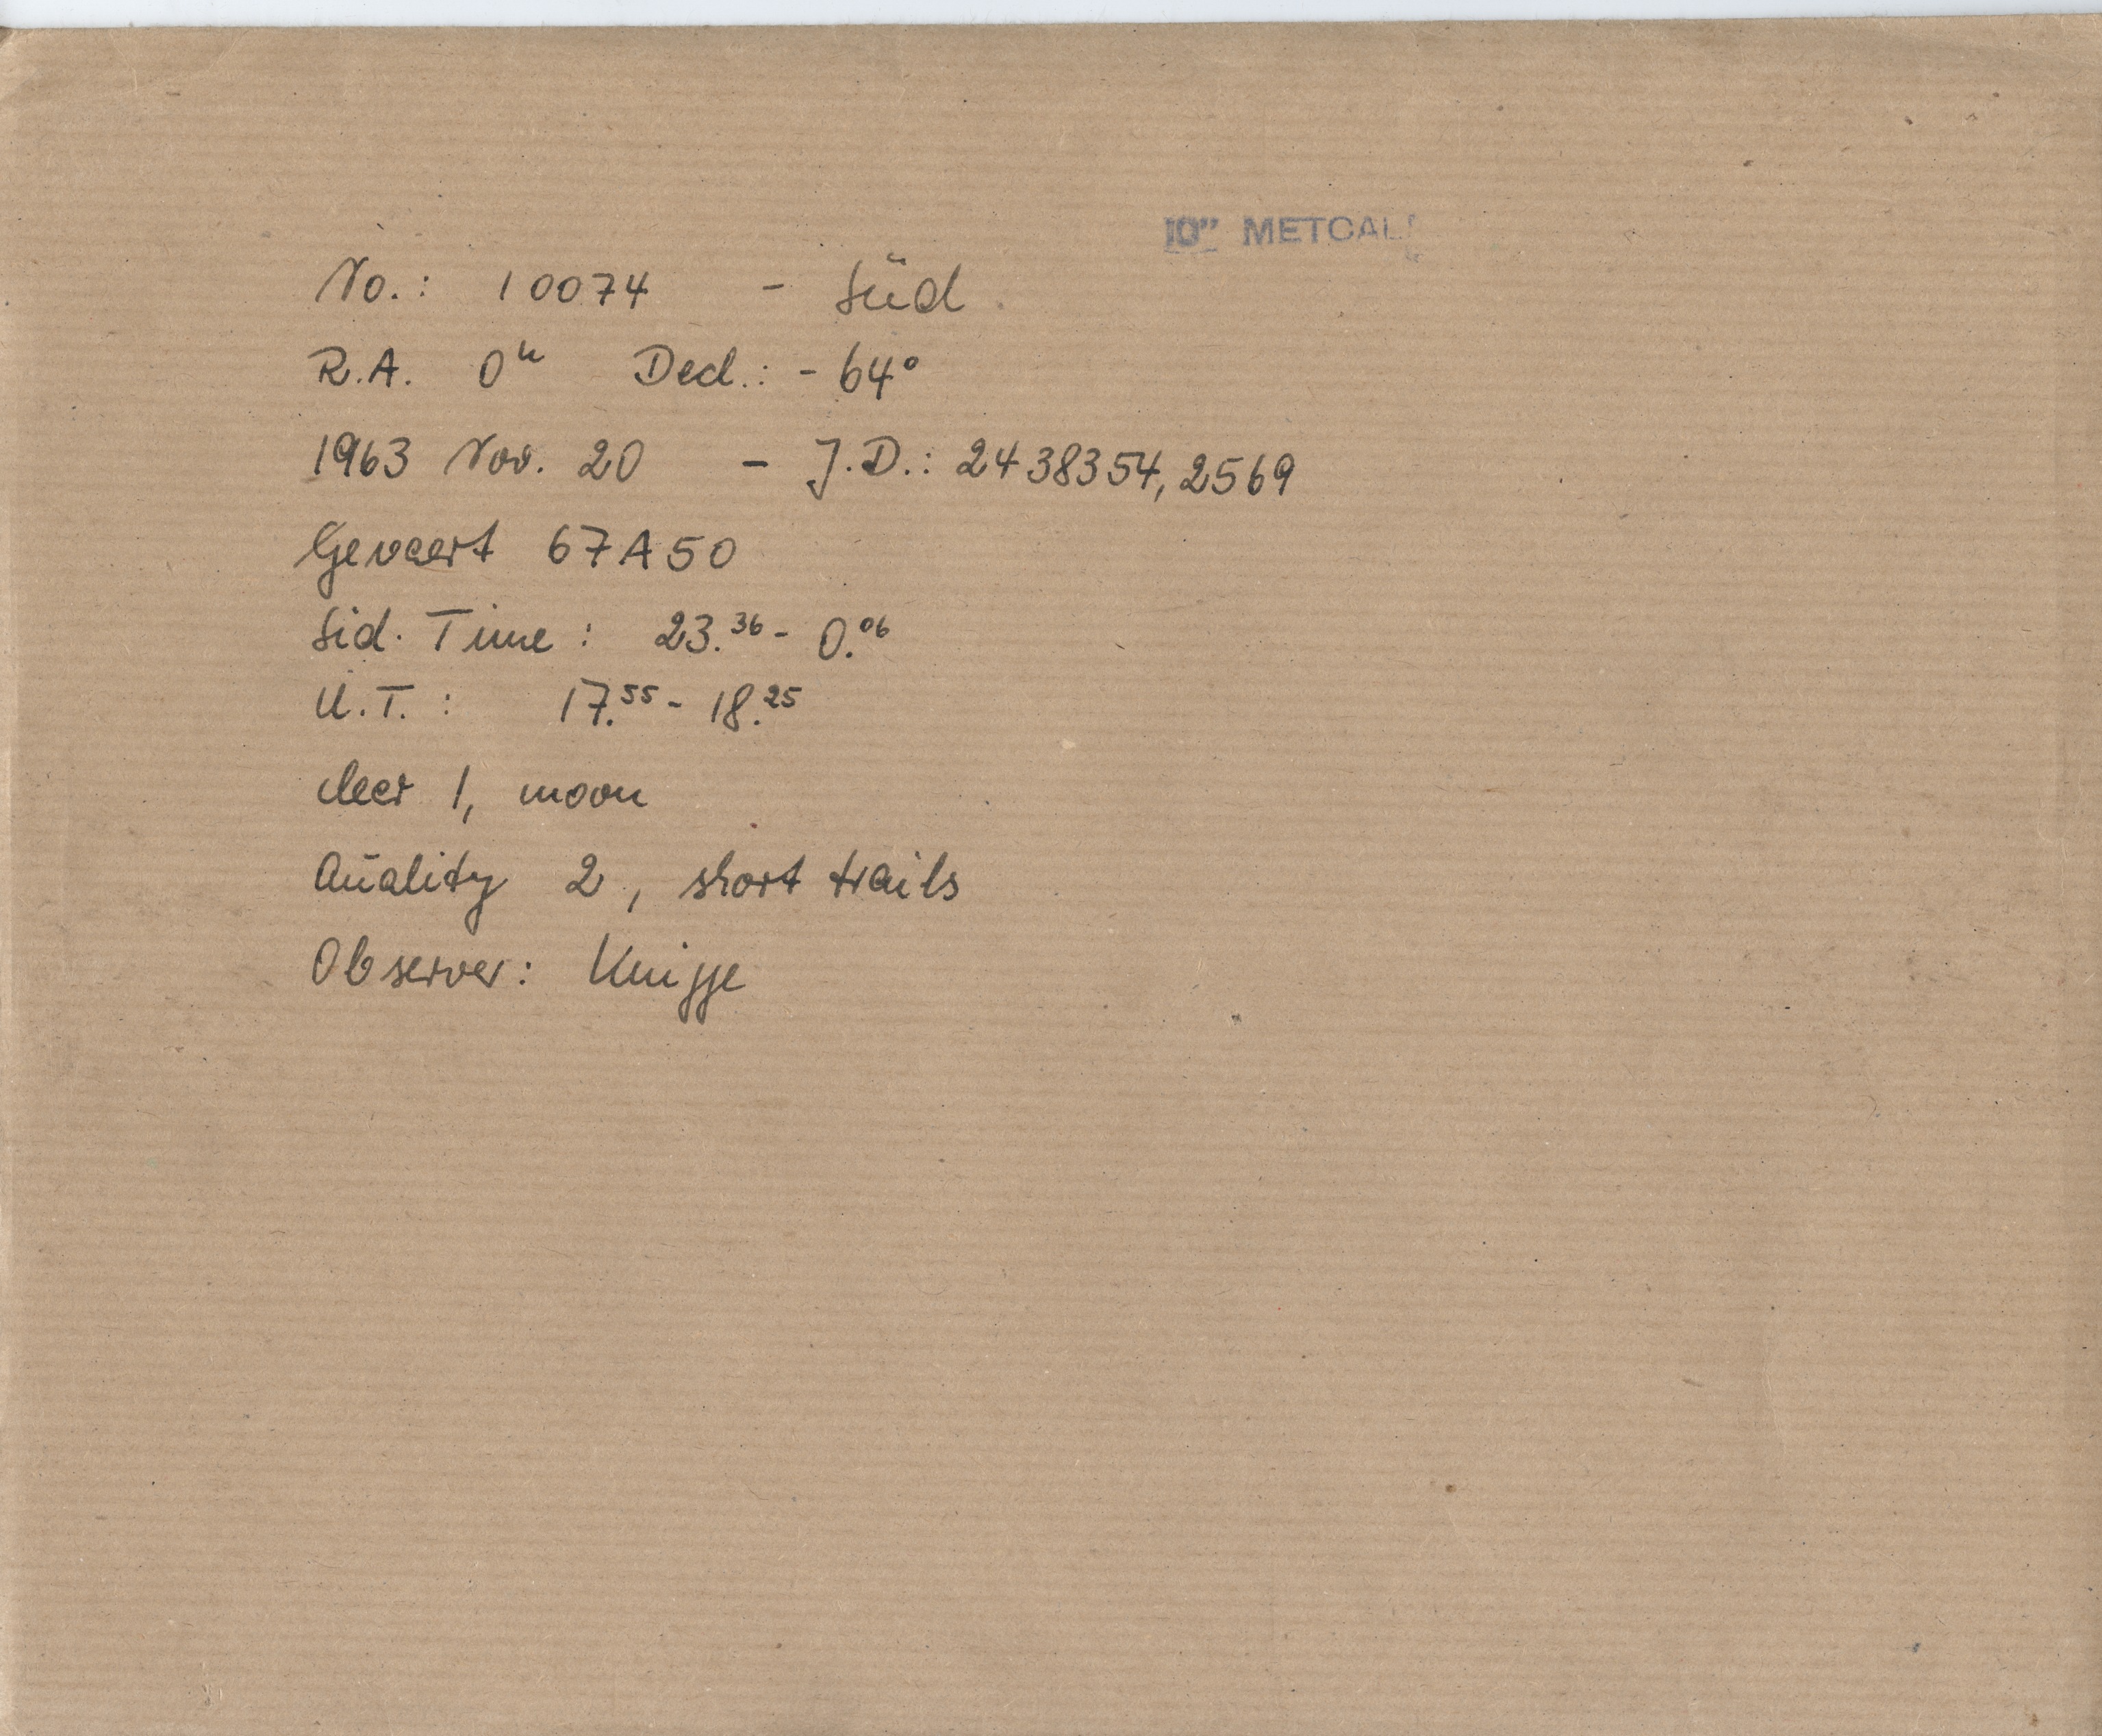 10" METCALF
No.: 10074 - Süd
R.A. 0ʰ Decl.: - 64°
1963 Nov. 20 - J.D.: 2438354,2569
Gevaert 67A50
Sid. Time: 23.³⁶ - 0.⁰⁶
U.T.: 17.⁵⁵ - 18.²⁵
clear 1, moon
Quality 2, short trails
Observer: Knigge